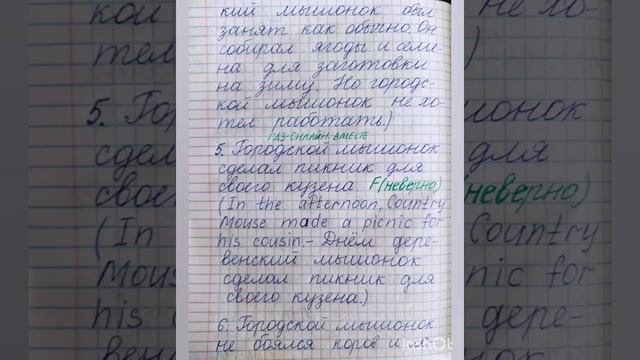 кий мышонок был
занят как обычно. Он
собирал ягоды и семе-
на для заготовки
на зиму. Но городс-
кой мышонок не хо-
тел работать.)
ГДЗ-ОНЛАЙН, ВМЕСТЕ
5. Городской мышонок
сделал пикник для
своего кузена F(неверно)
(In the afternoon, Country
Mouse made a picnic for
his cousin. - Днём дере-
венский мышонок
сделал пикник для
своего кузена.)
6. Городской мышонок
не боялся коров и